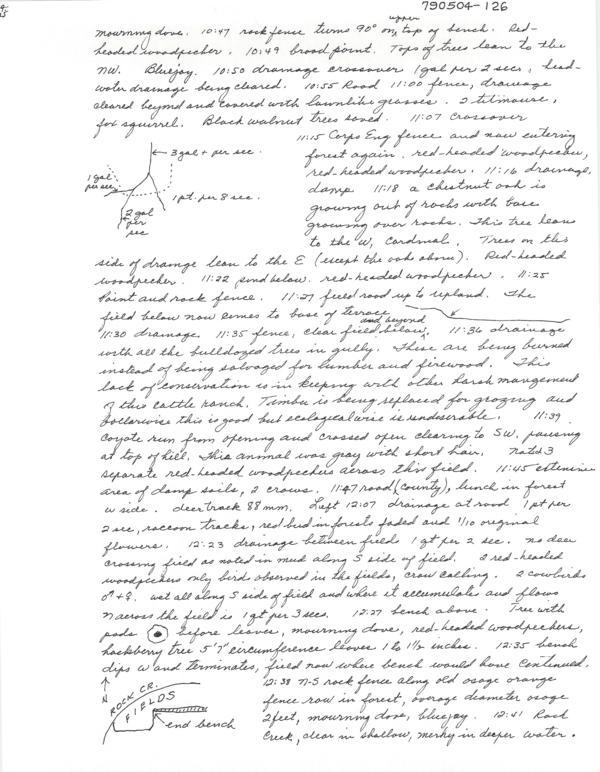 790504-126
mourning dove. 10:47 rock fence turns 90° on upper top of bench. Red-
headed woodpecker. 10:49 broad point. Tops of trees lean to the
NW. Bluejay. 10:50 drainage crossover 1 gal per 2 secs, head-
water drainage being cleared. 10:55 Road 11:00 fence, drainage
cleared beyond and covered with lawnlike grasses. 2 titmouse,
fox squirrel. Black walnut trees saved. 11:07 Crossover
3 gal + per sec.
1 gal per sec
1 pt. per 8 sec.
2 gal per sec
11:15 Corps Eng fence and now entering
forest again. red-headed woodpecker,
red-headed woodpecker. 11:16 drainage,
damp 11:18 a chestnut oak is
growing out of rocks with base
growing over rocks. This tree leans
to the W, Cardinal. Trees on this
side of drainage lean to the E (except the oak above). Red-headed
woodpecker. 11:22 pond below. red-headed woodpecker. 11:25
Point and rock fence. 11:27 field road up to upland. The
field below now comes to base of terrace
11:30 drainage 11:35 fence, clear field below and beyond, 11:36 drainage
with all the bulldozed trees in gully. These are being burned
instead of being salvaged for lumber and firewood. This
lack of conservation is in keeping with other harsh management
of this cattle ranch. Timber is being replaced for grazing and
dollarwise this is good but ecologicalwise is undesirable. 11:39
Coyote run from opening and crossed open clearing to SW, pausing
at top of hill. This animal was gray with short hair. Noted 3
separate red-headed woodpeckers across this field. 11:45 extensive
area of damp soils, 2 crows. 11:47 road (County), lunch in forest
W side. deer track 88 mm. Left 12:07 drainage at road 1 pt per
2 sec, raccoon tracks, red bud in forests faded and 1/10 original
flowers. 12:23 drainage between field 1 gt per 2 sec. no deer
crossing field as noted in mud along S side of field. 2 red-headed
woodpeckers only bird observed in the fields, crow calling. 2 cowbirds
♂ + ♀. wet all along S side of field and where it accumulates and flows
N across the field is 1 gt per 3 secs. 12:27 bench above. Tree with
pods before leaves, mourning dove, red-headed woodpeckers,
hackberry tree 5'7" circumference leaves 1 to 1 1/2 inches. 12:35 bench
dips W and terminates, field now where bench would have continued.
N
ROCK CR.
FIELDS
end bench
12:38 N-S rock fence along old osage orange
fence row in forest, average diameter osage
2 feet, mourning dove, bluejay. 12:41 Rock
Creek, clear in shallow, murky in deeper water.